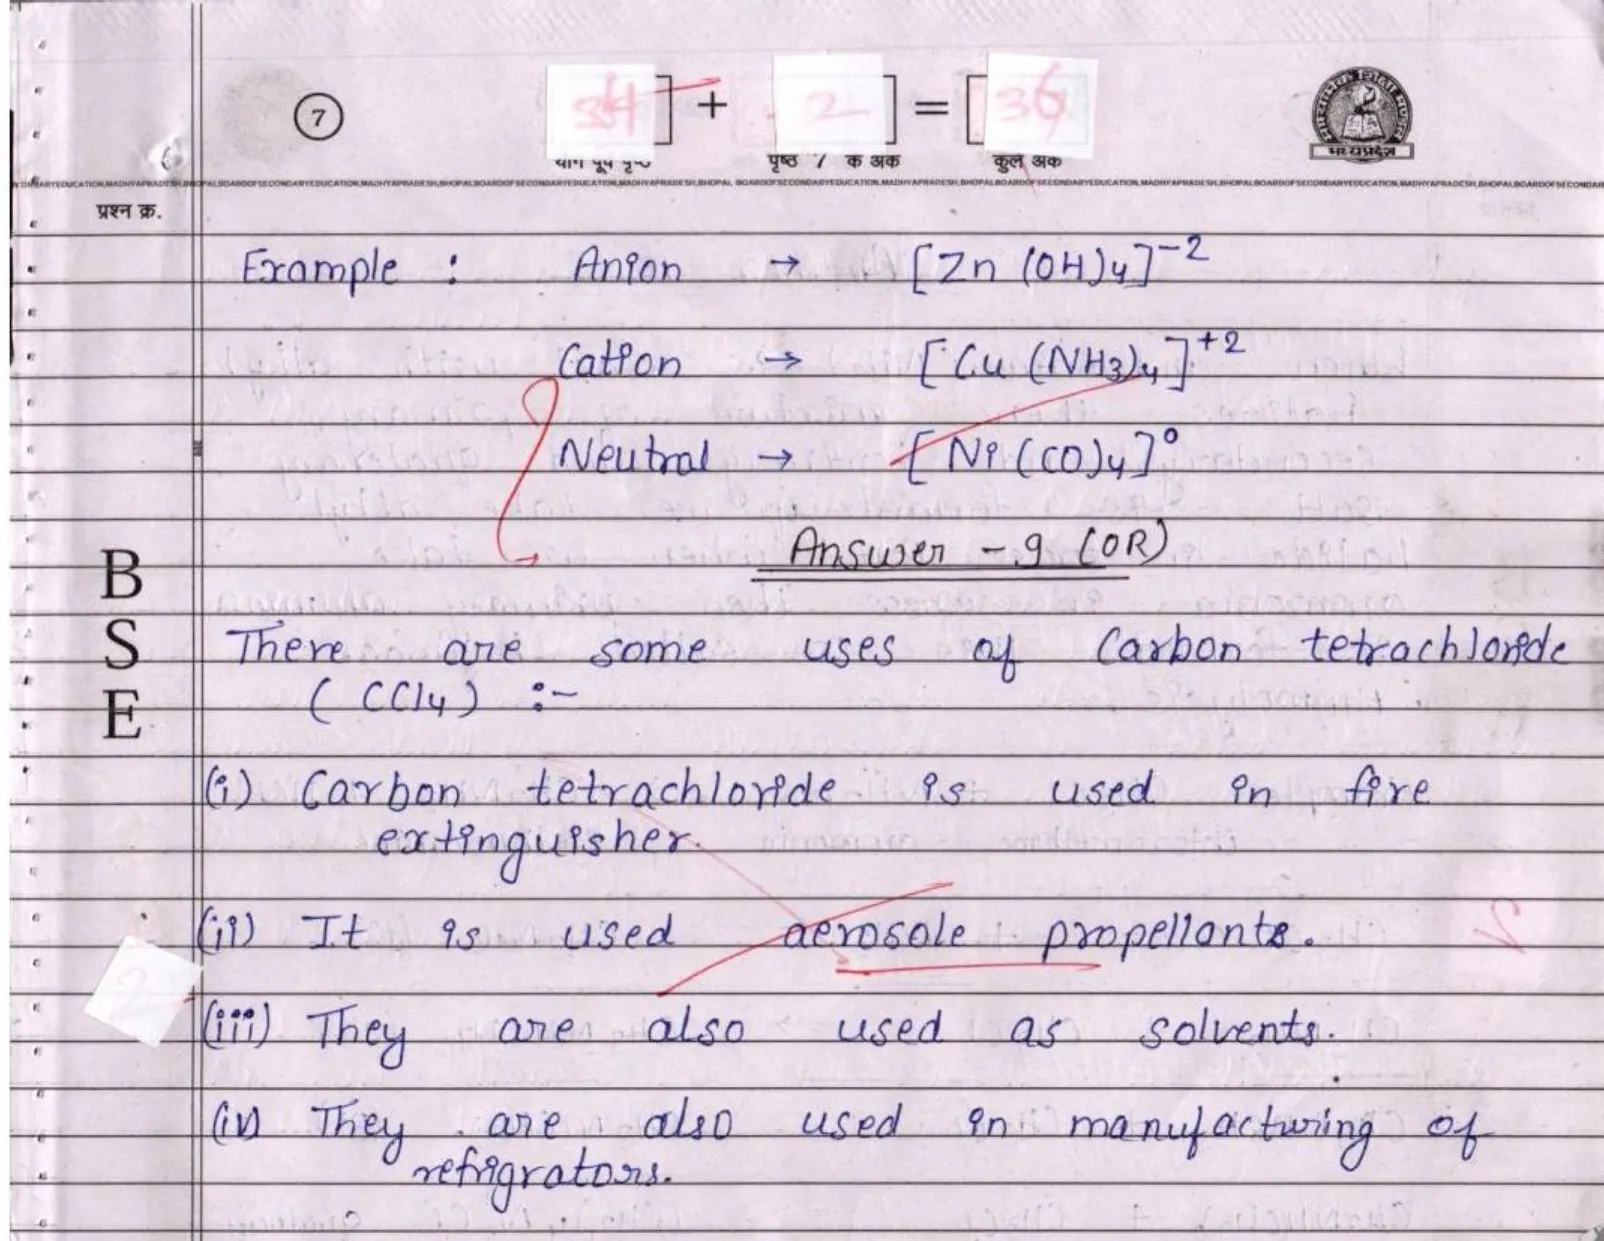 7
34 + 2 = 36
योग पूर्व पृष्ठ पृष्ठ 7 के अंक कुल अंक
मध्यप्रदेश
BOARD OF SECONDARY EDUCATION, MADHYA PRADESH, BHOPAL
प्रश्न क्र.
Example : Anion → [Zn (OH)4]⁻²
Cation → [Cu (NH3)4]⁺²
Neutral → [Ni (CO)4]⁰
Answer - 9 (OR)
B
S
E
There are some uses of Carbon tetrachloride
( CCl4) :-
(i) Carbon tetrachloride is used in fire
extinguisher.
(ii) It is used aerosole propellants.
2
(iii) They are also used as solvents.
(iv) They are also used in manufacturing of
refrigrators.